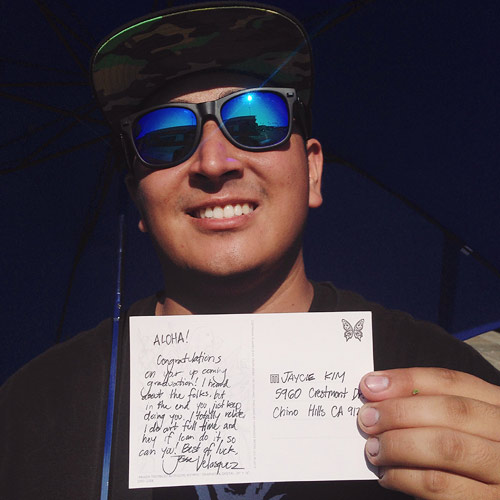 ALOHA!
Congratulations
on your up coming
graduation! I heard
about the folks, but
in the end you just keep
doing you. I totally relate
I do art full time and
hey if I can do it, so
can you! Best of luck,
Jesse Velasquez
JAYCIE KIM
5960 Crestmont Dr
Chino Hills CA 917